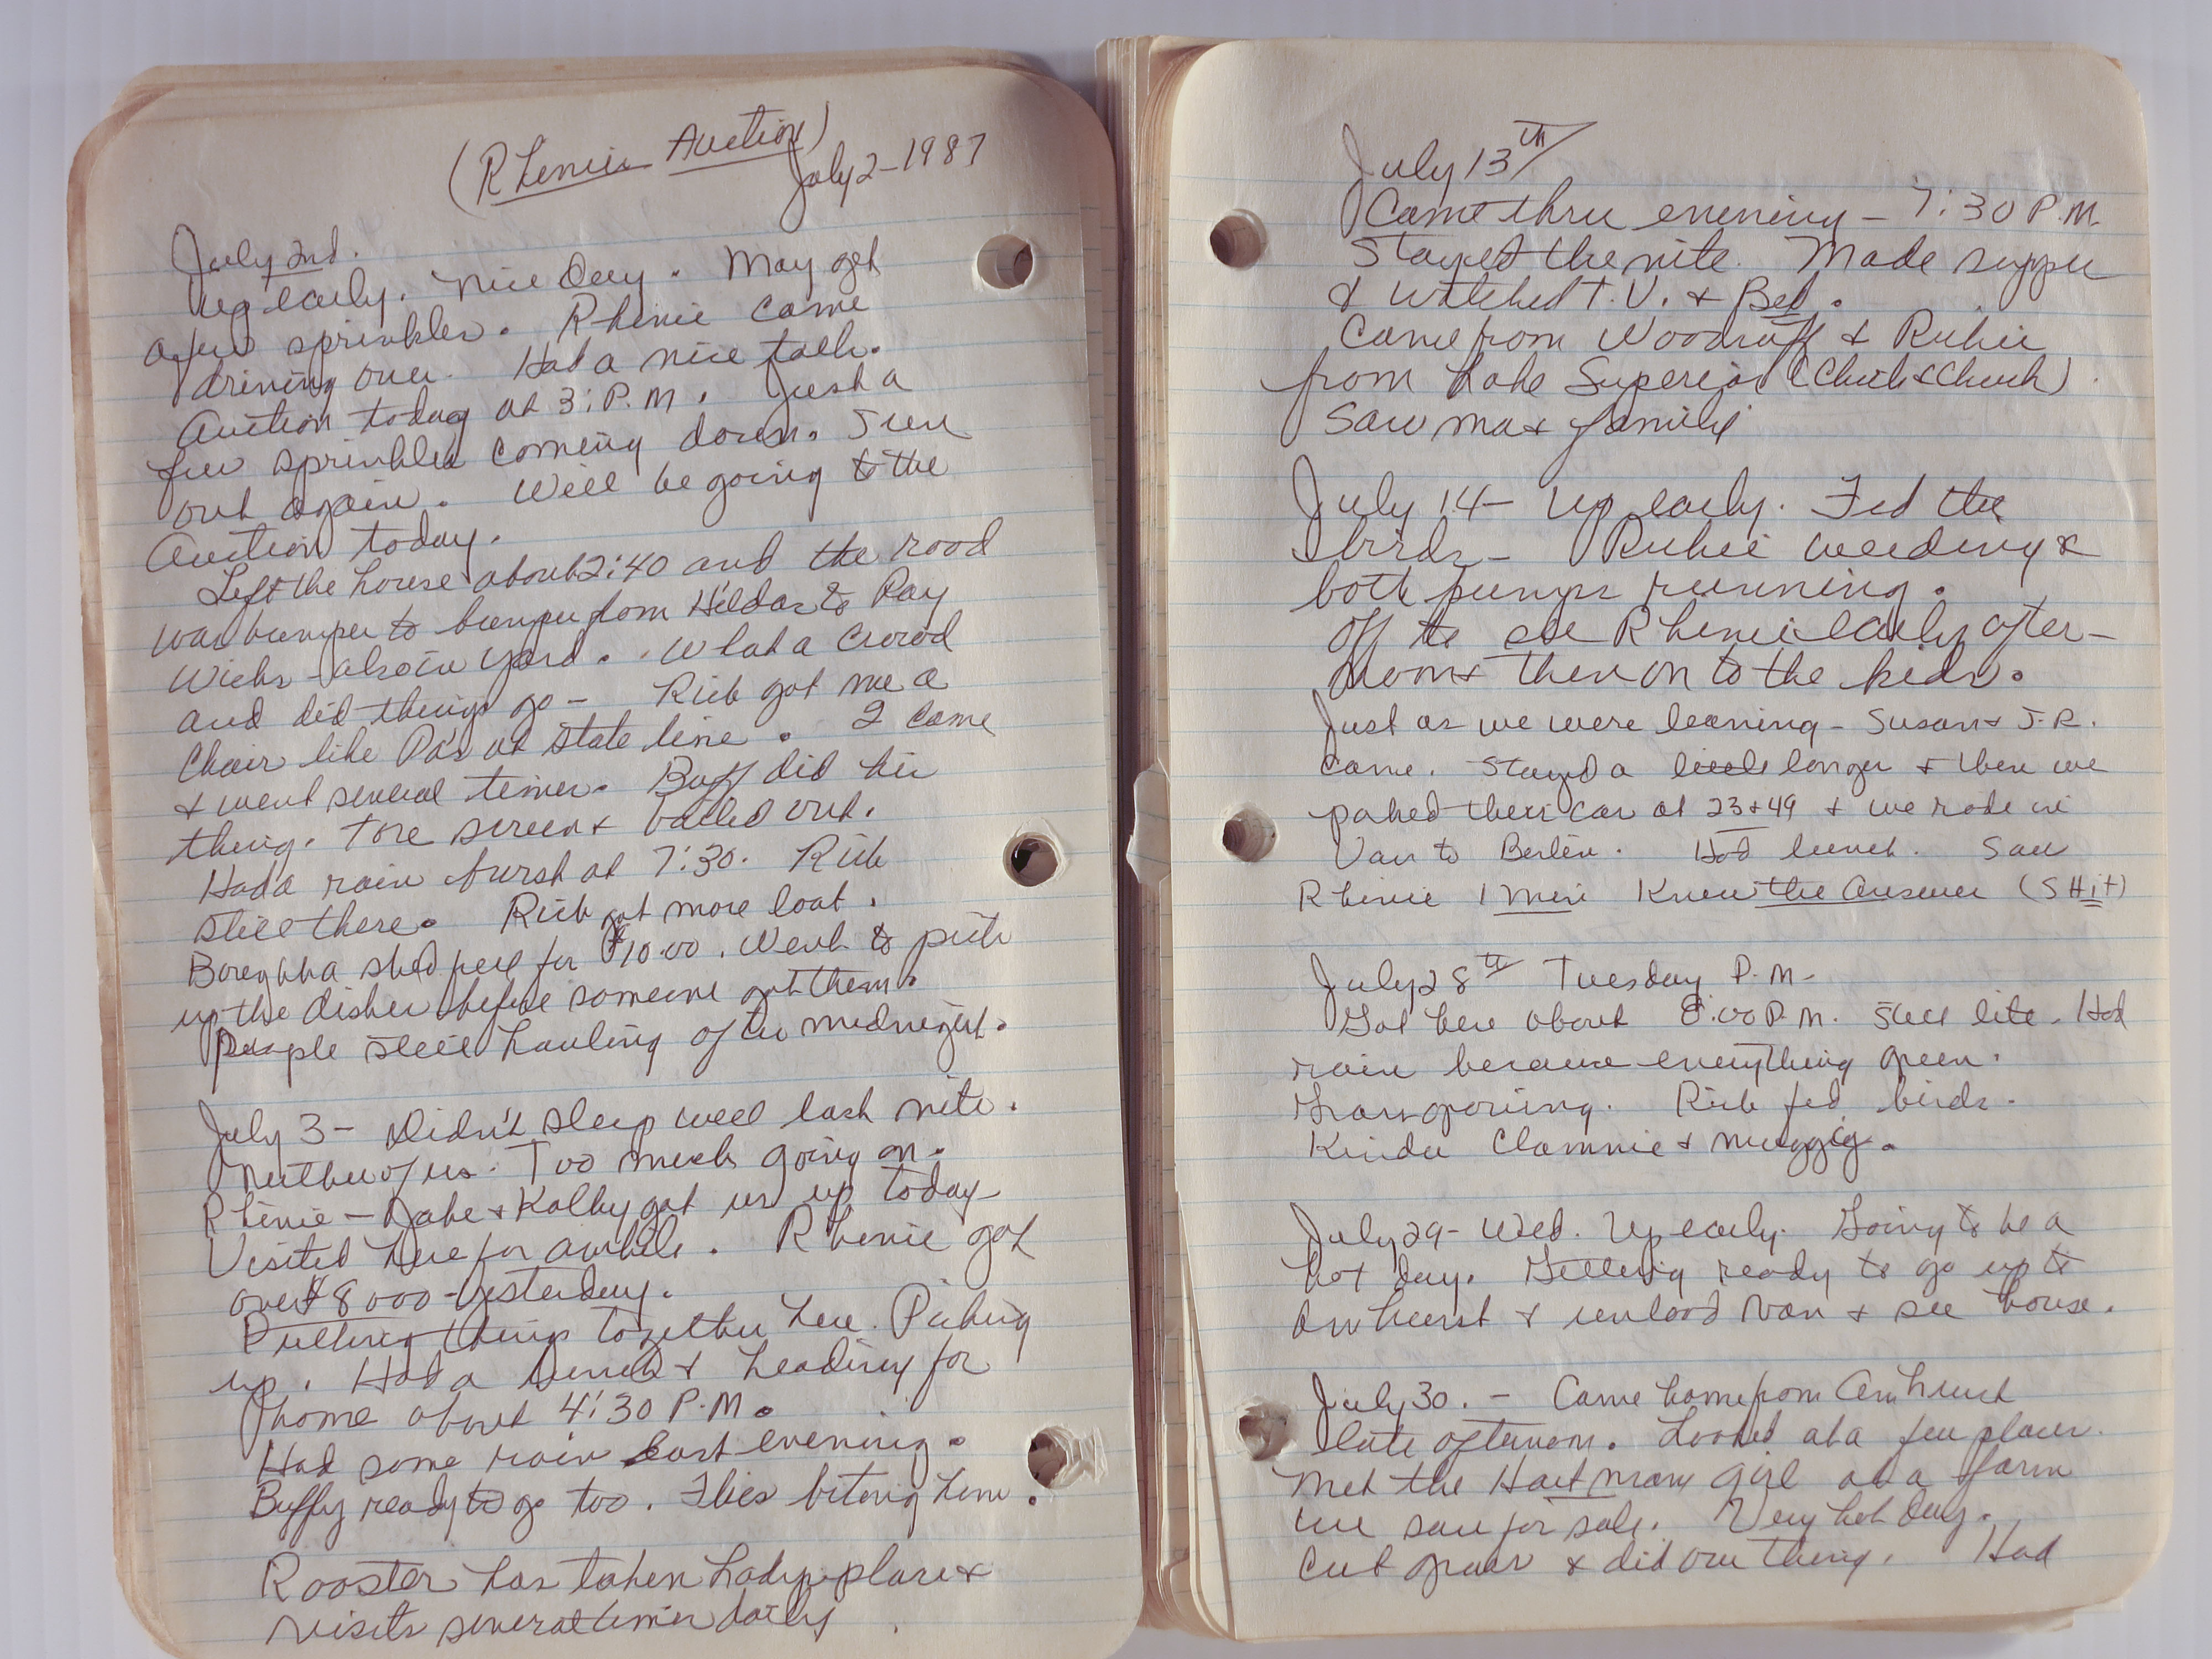 (Rhenie's Auction)
July 2-1987
July 2nd.
Up early. Nice Day. May get
a few sprinkles. Rhenie came
driving over. Had a nice talk.
Auction today at 3:P.M. Just a
few sprinkles coming down. Sun
out again. Will be going to the
Auction today.
Left the house about 2:40 and the road
was bumper to bumper from Hildas to Ray
Wicks - also in yard. What a crowd
and did things go - Rick got me a
Chair like Pa's at State line. I came
& went several times. Buff did his
thing. Tore screen & bailed out.
Had a rain burst at 7:30. Rick
still there. Rick got more loot.
Bought a shed full for $10.00. Went to pick
up the dishes before someone got them.
People still hauling after midnight.
July 3- Didn't sleep well last nite.
Neither of us. Too much going on.
Rhenie - Jake & Kathy got us up today
Visited here for awhile. Rhenie got
over $8000 - yesterday.
Putting things together here. Picking
up. Had a lunch & heading for
home about 4:30 P.M.
Had some rain last evening.
Buffy ready to go too. Flies biting him.
Rooster has taken Lady's place &
visits several times daily
July 13th
Came thru evening - 7:30 P.M.
Stayed the nite. Made supper
& watched T.V. & Bed.
Came from Woodruff & Richie
from Lake Superior (Chick & Chuck).
Saw Ma & family
July 14- Up early. Fed the
birds - Richie weeding &
both pumps running.
Off to see Rhenie early after-
noon & then on to the kids.
Just as we were leaving - Susan & J.R.
came. Stayed a little longer & then we
parked their car at 23 & 49 & we rode in
Van to Berlin. Had lunch. Saw
Rhenie 1 Min Knew the Answer (SHit)
July 28th Tuesday P.M-
Got here about 8:00 P.M. Still lite. Had
rain because everything green.
Grass growing. Rick fed birds.
Kinda Clammie & muggy.
July 29- Wed. Up early. Going to be a
hot day. Getting ready to go up to
Amhurst & unload Van & see house.
July 30. - Came home from Amhurst
late afternoon. Looked at a few places.
Met the Hartman girl at a farm
we saw for sale. Very hot day.
Cut grass & did our thing. Had